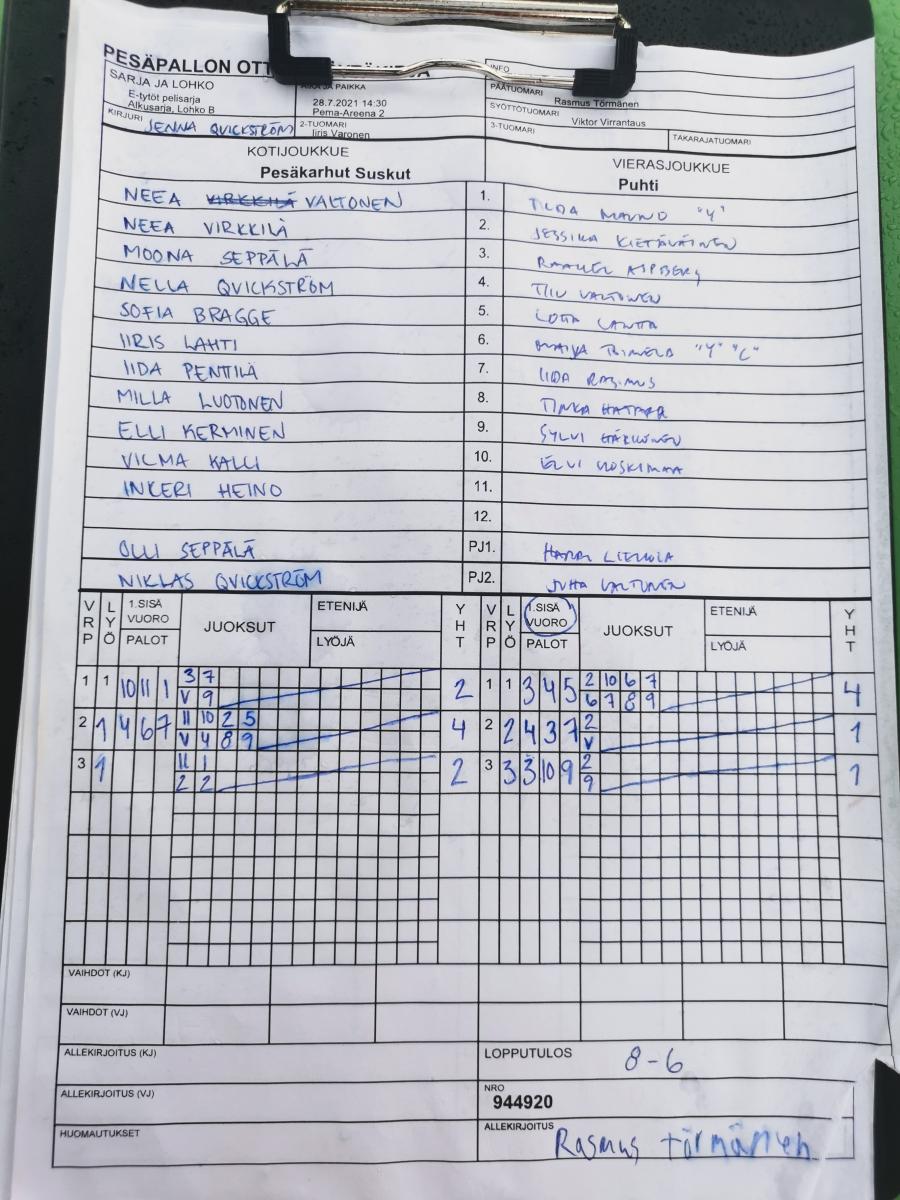 PESÄPALLON OTT
SARJA JA LOHKO
E-tytöt pelisarja
Alkusarja, Lohko B
AIKA JA PAIKKA
28.7.2021 14:30
Pema-Areena 2
INFO
PÄÄTUOMARI Rasmus Törmänen
SYÖTTÖTUOMARI Viktor Virrantaus
KIRJURI JENNA QVICKSTRÖM
2-TUOMARI
Iiris Varonen
3-TUOMARI
TAKARAJATUOMARI
KOTIJOUKKUE VIERASJOUKKUE
Pesäkarhut Suskut Puhti
NEEA VIRKKILÄ VALTONEN 1. TILDA "Y"
NEEA VIRKKILÄ 2. JESSIKA KIETÄVÄINEN
MOONA SEPPÄLÄ 3.
NELLA QVICKSTRÖM 4. TIIU VALTONEN
SOFIA BRAGGE 5. LOTTA
IIRIS LAHTI 6. "Y" "C"
IIDA PENTILÄ 7. IIDA RASIMUS
MILLA LUOTONEN 8.
ELLI KERMINEN 9. SYLVI HÄRKÖNEN
VILMA KALLI 10. ELVI KOSKIMAA
INKERI HEINO 11.
12.
OLLI SEPPÄLÄ PJ1.
NIKLAS QVICKSTRÖM PJ2. JUHA VALTONEN
VRP LYÖ 1.SISÄ VUORO PALOT JUOKSUT ETENIJÄ LYÖJÄ YHT VRP LYÖ 1.SISÄ VUORO PALOT JUOKSUT ETENIJÄ LYÖJÄ YHT
1 1 10 11 1 3 7 2 1 1 3 4 5 2 10 6 7 4
V 9 6 7 8 9
2 1 4 6 7 11 10 2 5 4 2 2 4 3 7 2 1
V 4 8 9 V
3 1 11 1 2 3 3 3 10 9 2 1
2 2 9
VAIHDOT (KJ)
VAIHDOT (VJ)
ALLEKIRJOITUS (KJ) LOPPUTULOS 8-6
ALLEKIRJOITUS (VJ) NRO
944920
HUOMAUTUKSET ALLEKIRJOITUS Rasmus Törmänen